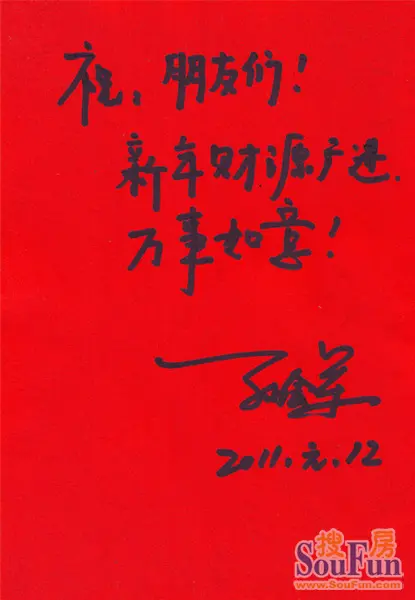 祝，朋友们！
新年财源广进.
万事如意！
2011.元.12
搜房
SouFun
www.SouFun.com